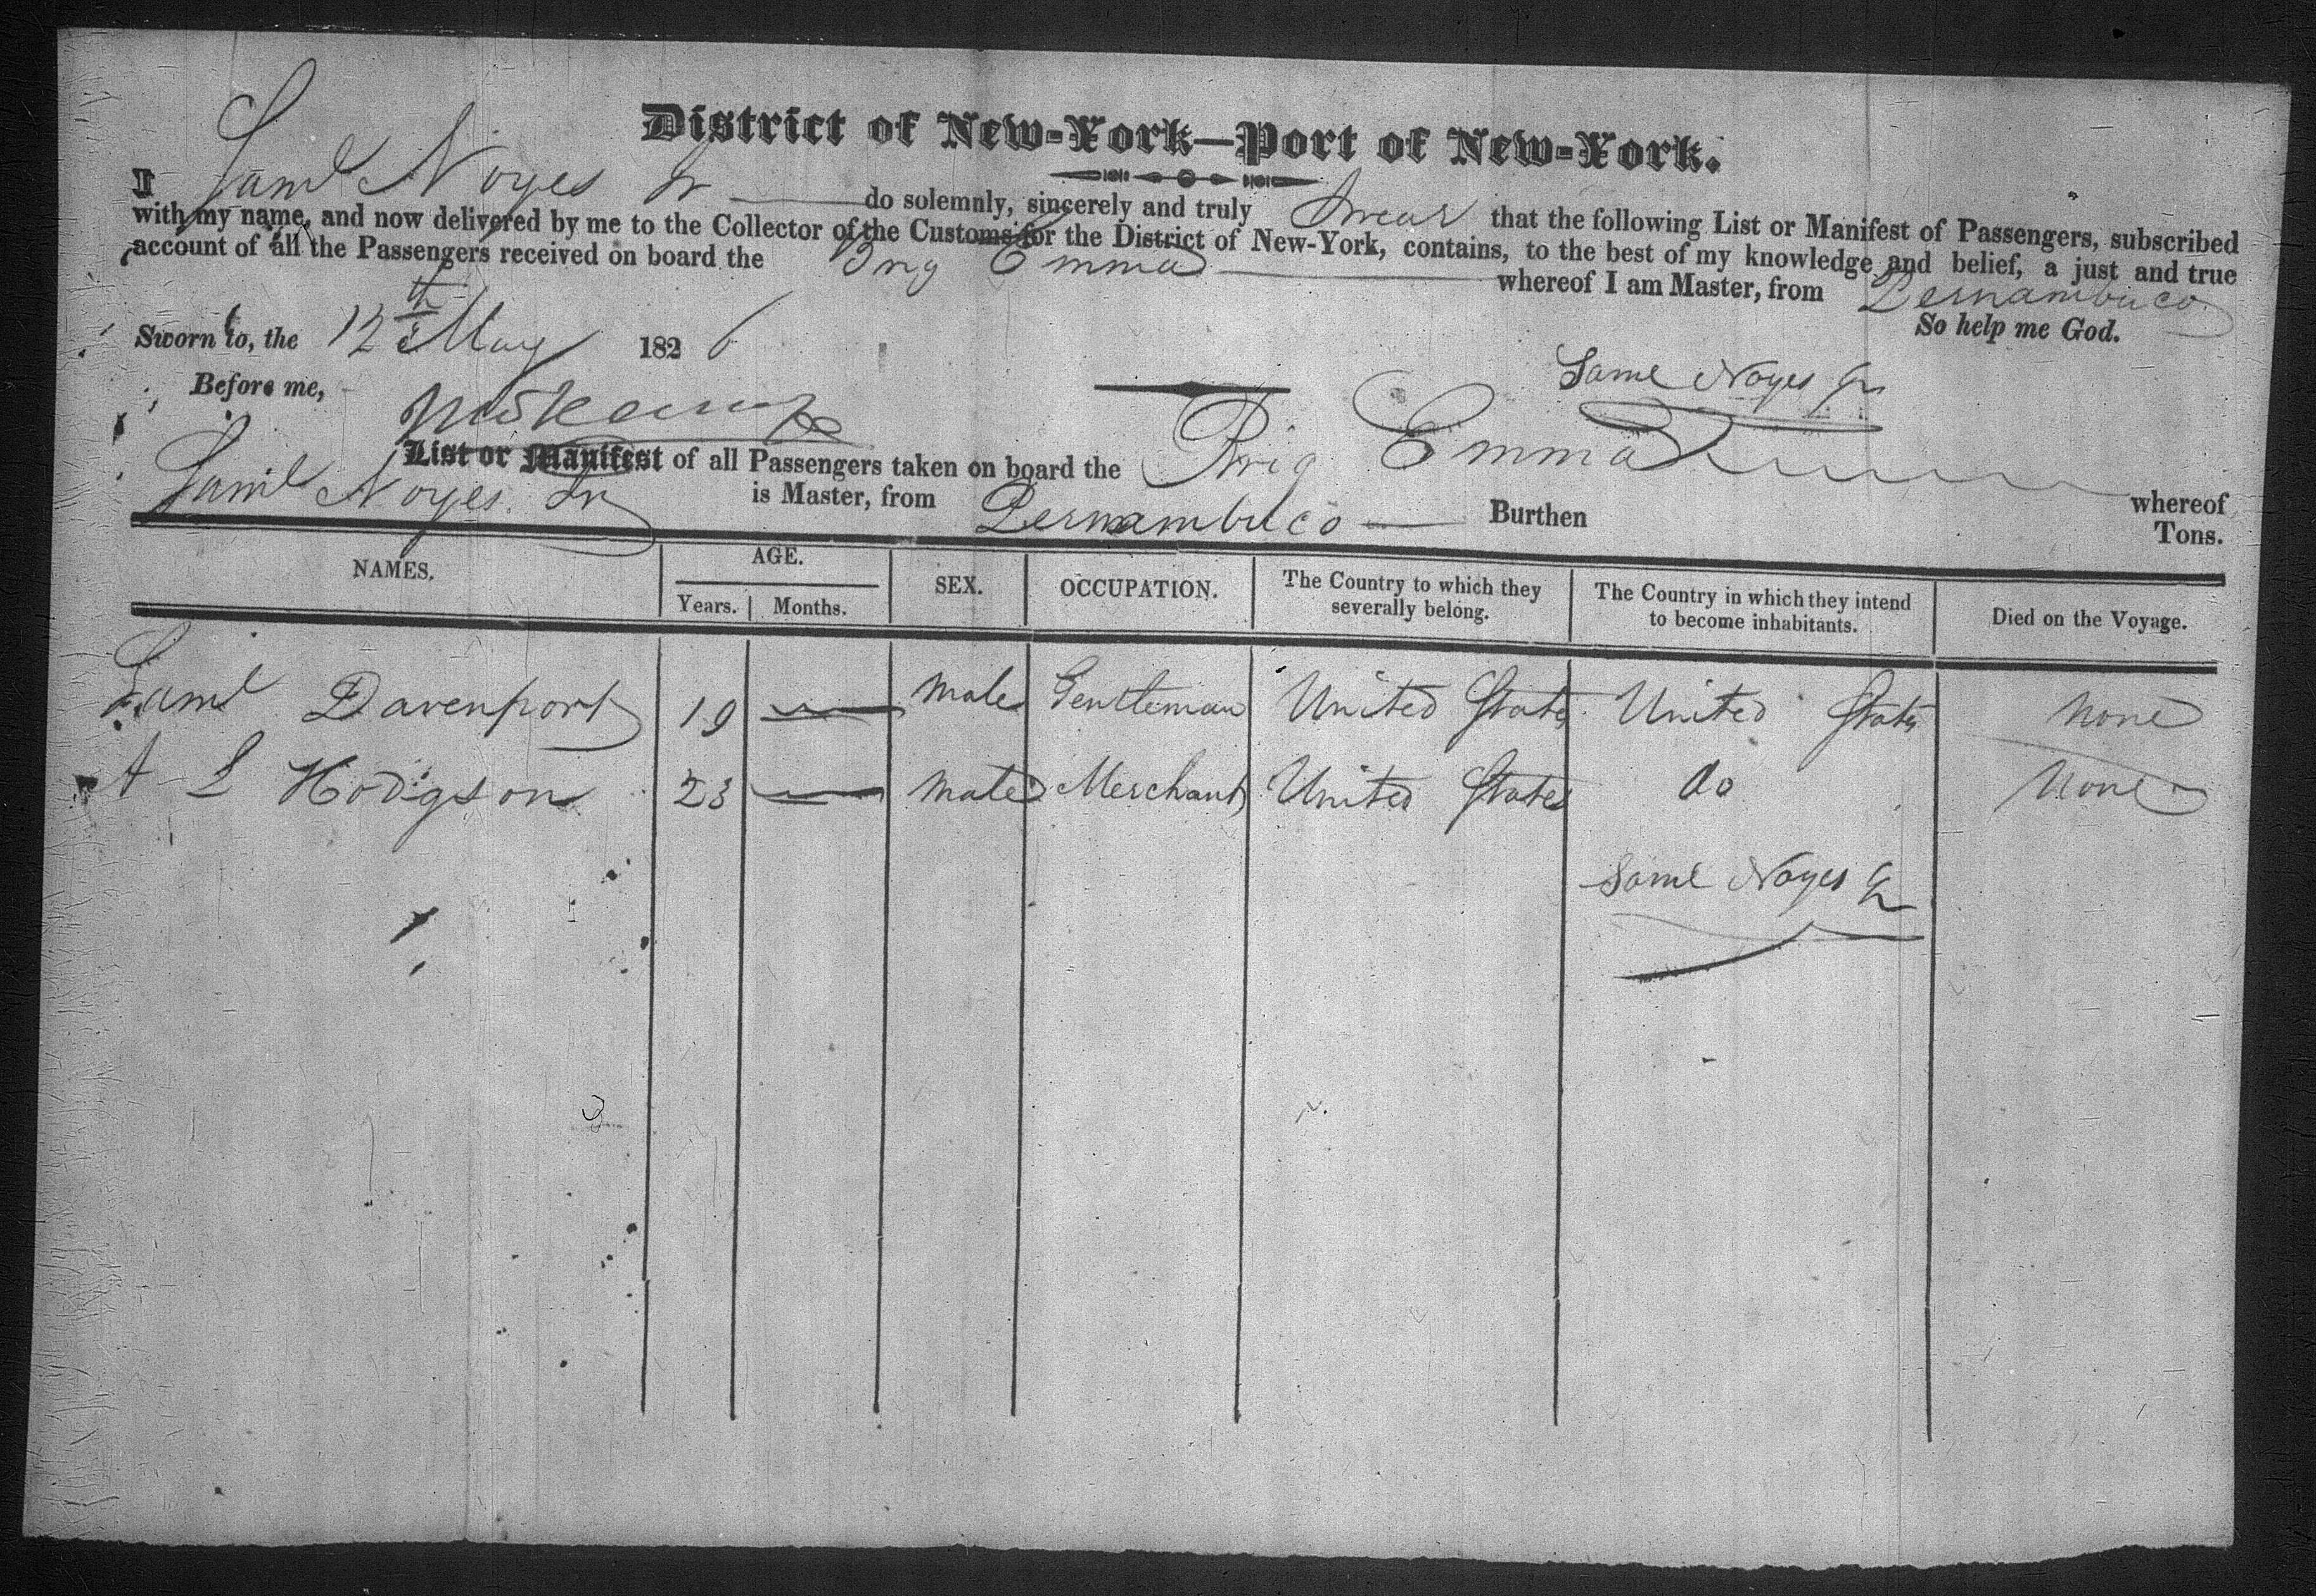 District of New-York—Port of New-York.
I Saml Noyes Jr do solemnly, sincerely and truly Swear that the following List or Manifest of Passengers, subscribed
with my name, and now delivered by me to the Collector of the Customs for the District of New-York, contains, to the best of my knowledge and belief, a just and true
account of all the Passengers received on board the Brig Emma whereof I am Master, from Pernambuco
So help me God.
Sworn to, the 12th May 1826
Saml Noyes Jr
Before me,
List or Manifest of all Passengers taken on board the Brig Emma whereof
Saml Noyes Jr is Master, from Pernambuco Burthen Tons.
NAMES. AGE. SEX. OCCUPATION. The Country to which they severally belong. The Country in which they intend to become inhabitants. Died on the Voyage.
Years. Months.
Saml Davenport 19 — Male Gentleman United States United States None
A L Hodgson 23 — Male Merchant United States do None
Saml Noyes Jr